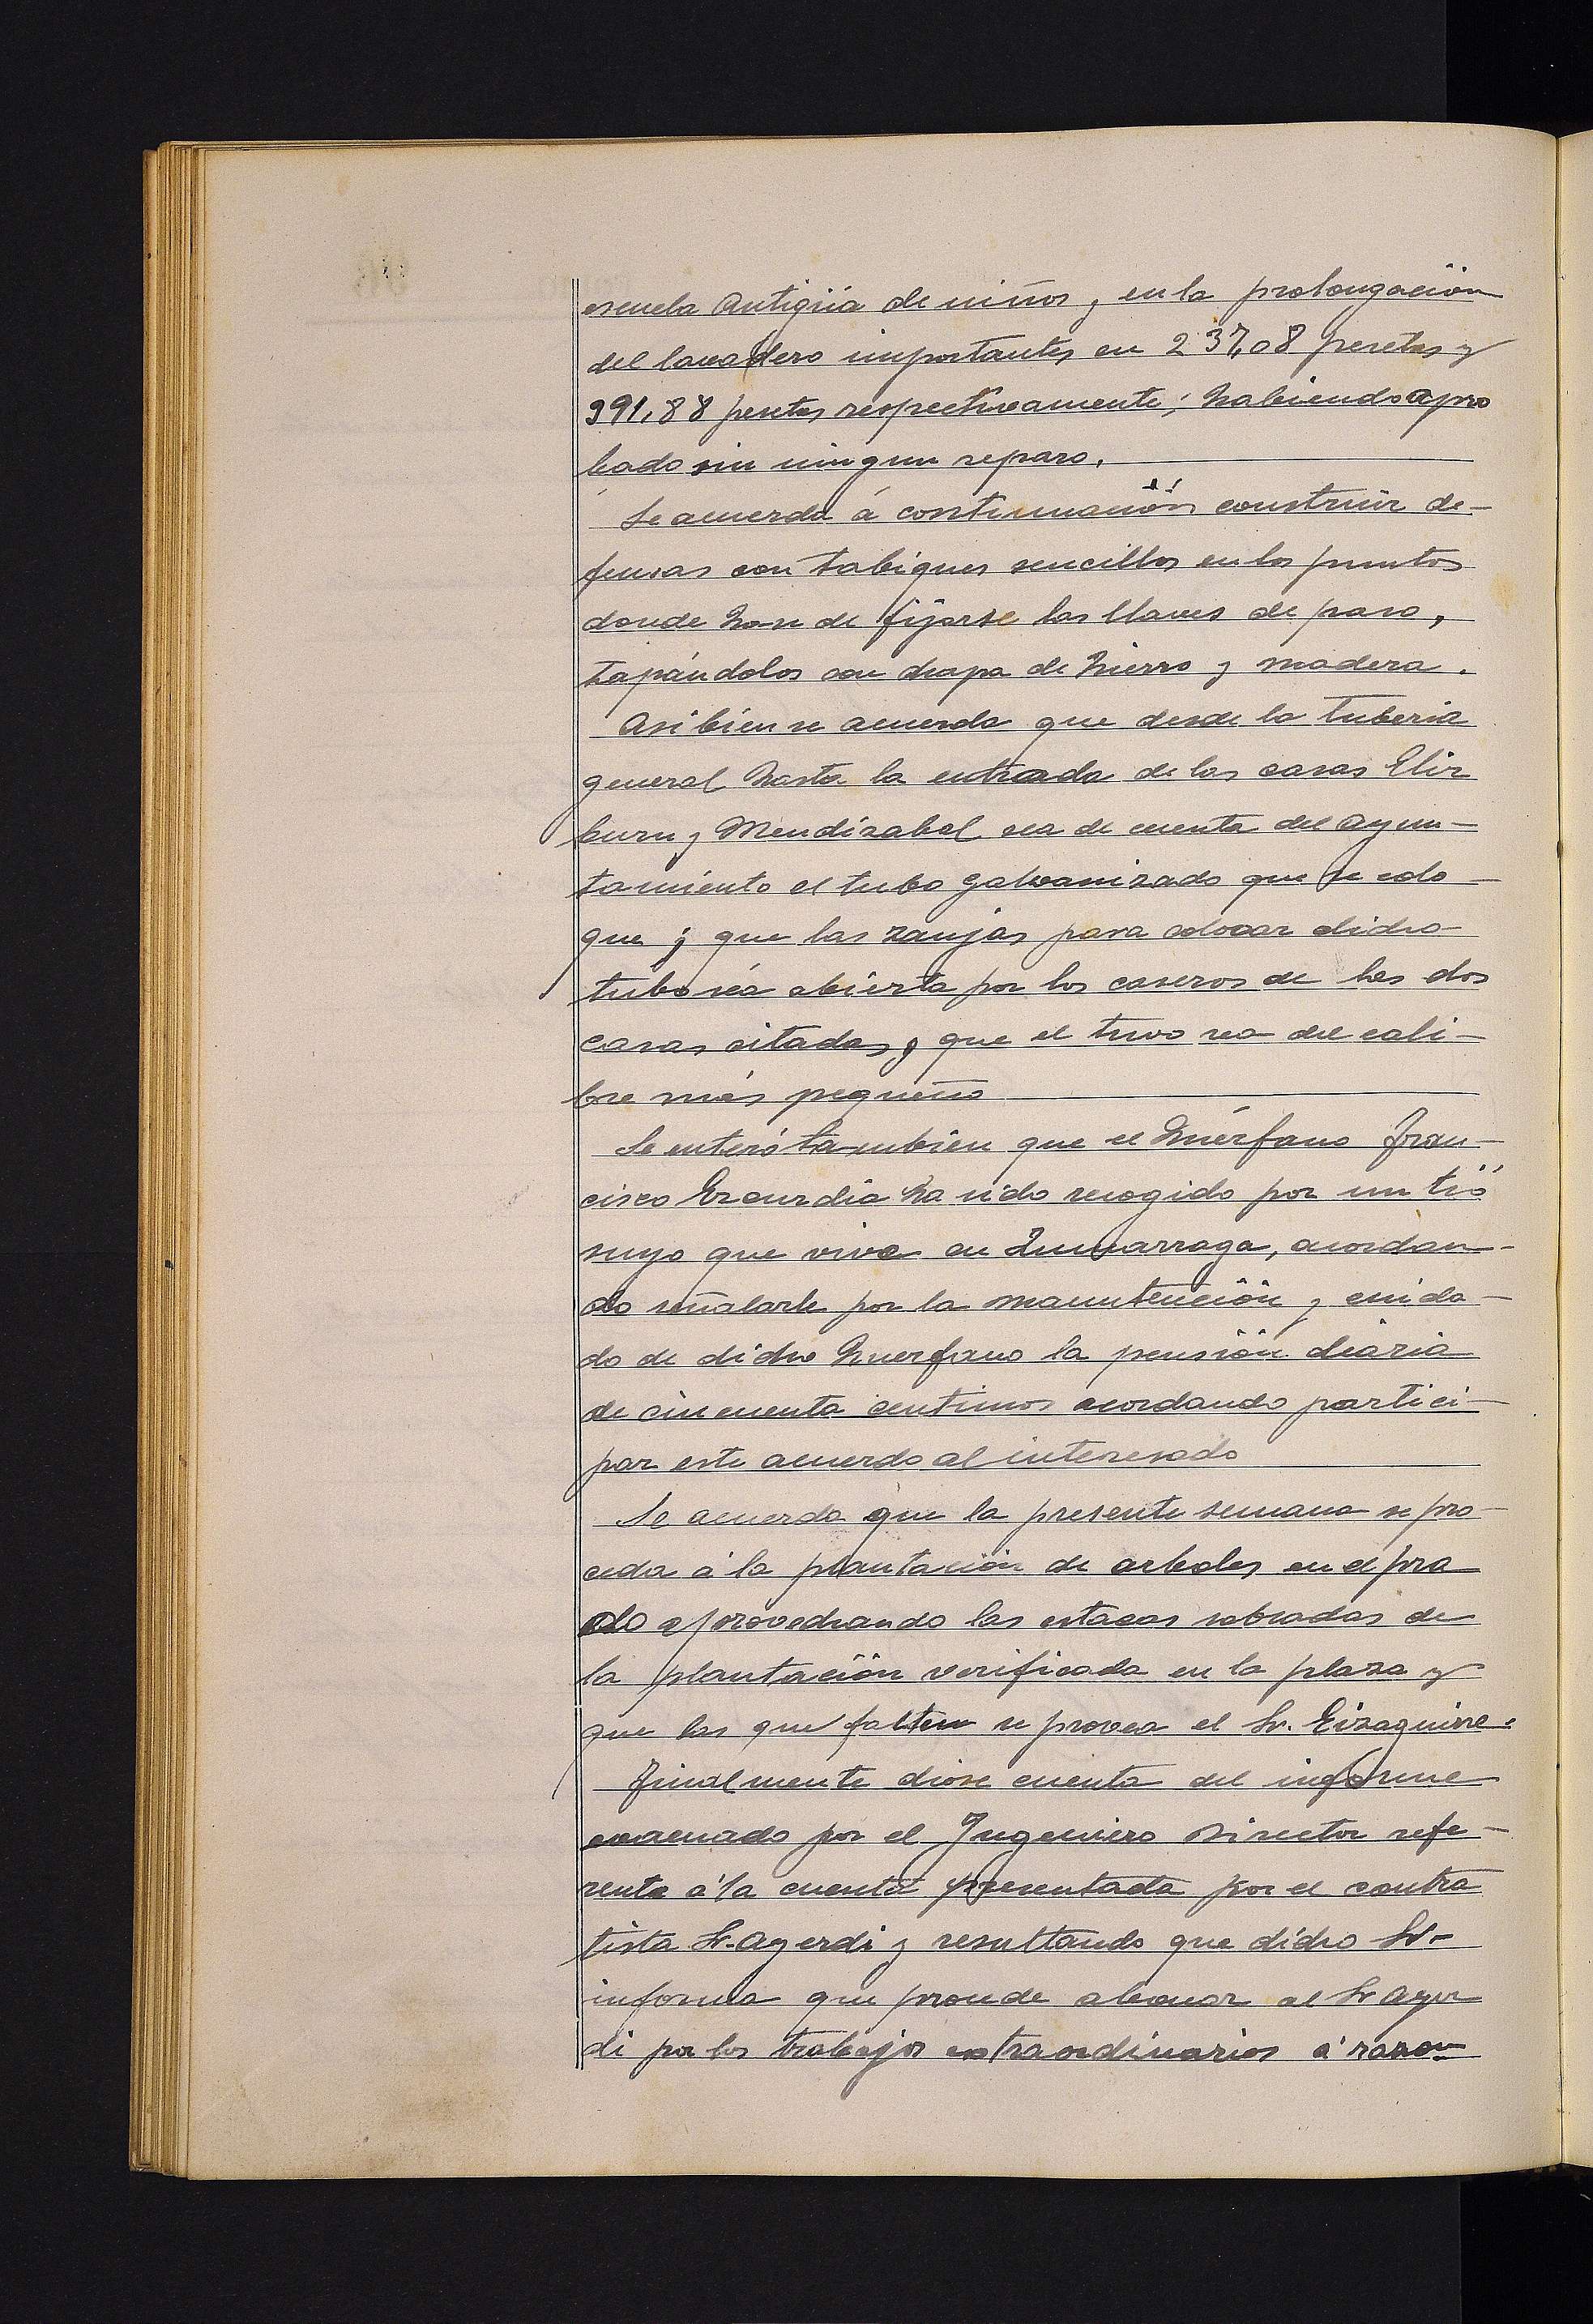 escuela Antigüa de niños, en la prolongación
del lavadero importantes en 237,08 pesetas y
391,88 pesetas respectivamente; habiendo apro
bado sin ningun reparo.
Se acuerda á continuación construir de-
fensas con tabiques sencillos en los puntos
donde han de fijarse las llaves de paso,
tapándolos con chapa de hierro y madera.
Asi bien se acuerda que desde la tuberia
general hasta la entrada de las casas Elir
buru y Mendizabal sea de cuenta del ayun-
tamiento el tubo galvanizado que se colo-
que y que las zanjas para colocar dicho
tubo sea abierta por los caseros de las dos
casas citadas, que el tuvo sea del cali-
bre más pequeño
Se enteró tambien que el huérfano Fran-
cisco Ezcurdia ha sido recogido por un tió
suyo que vive en Zumarraga, acordan-
do señalarle por la manutención y cuida-
do de dicho huerfano la pensión diária
de cincuenta centimos acordando partici-
par este acuerdo al interesado
Se acuerda que la presente semana se pro-
ceda á la plantación de arboles en el pra
do aprovechando las estacas sobradas de
la plantación verificada en la plaza y
que las que falten se provea el Sr. Eizaguirre.
Finalmente diose cuenta del informe
evacuado por el Ingeniero Director refe-
rente á la cuenta presentada por el contra
tista Sr. Ayerdi y resultando que dicho Sr.
informa que procede abonar al Sr Ayer
di por los trabajos extraordinarios á razon